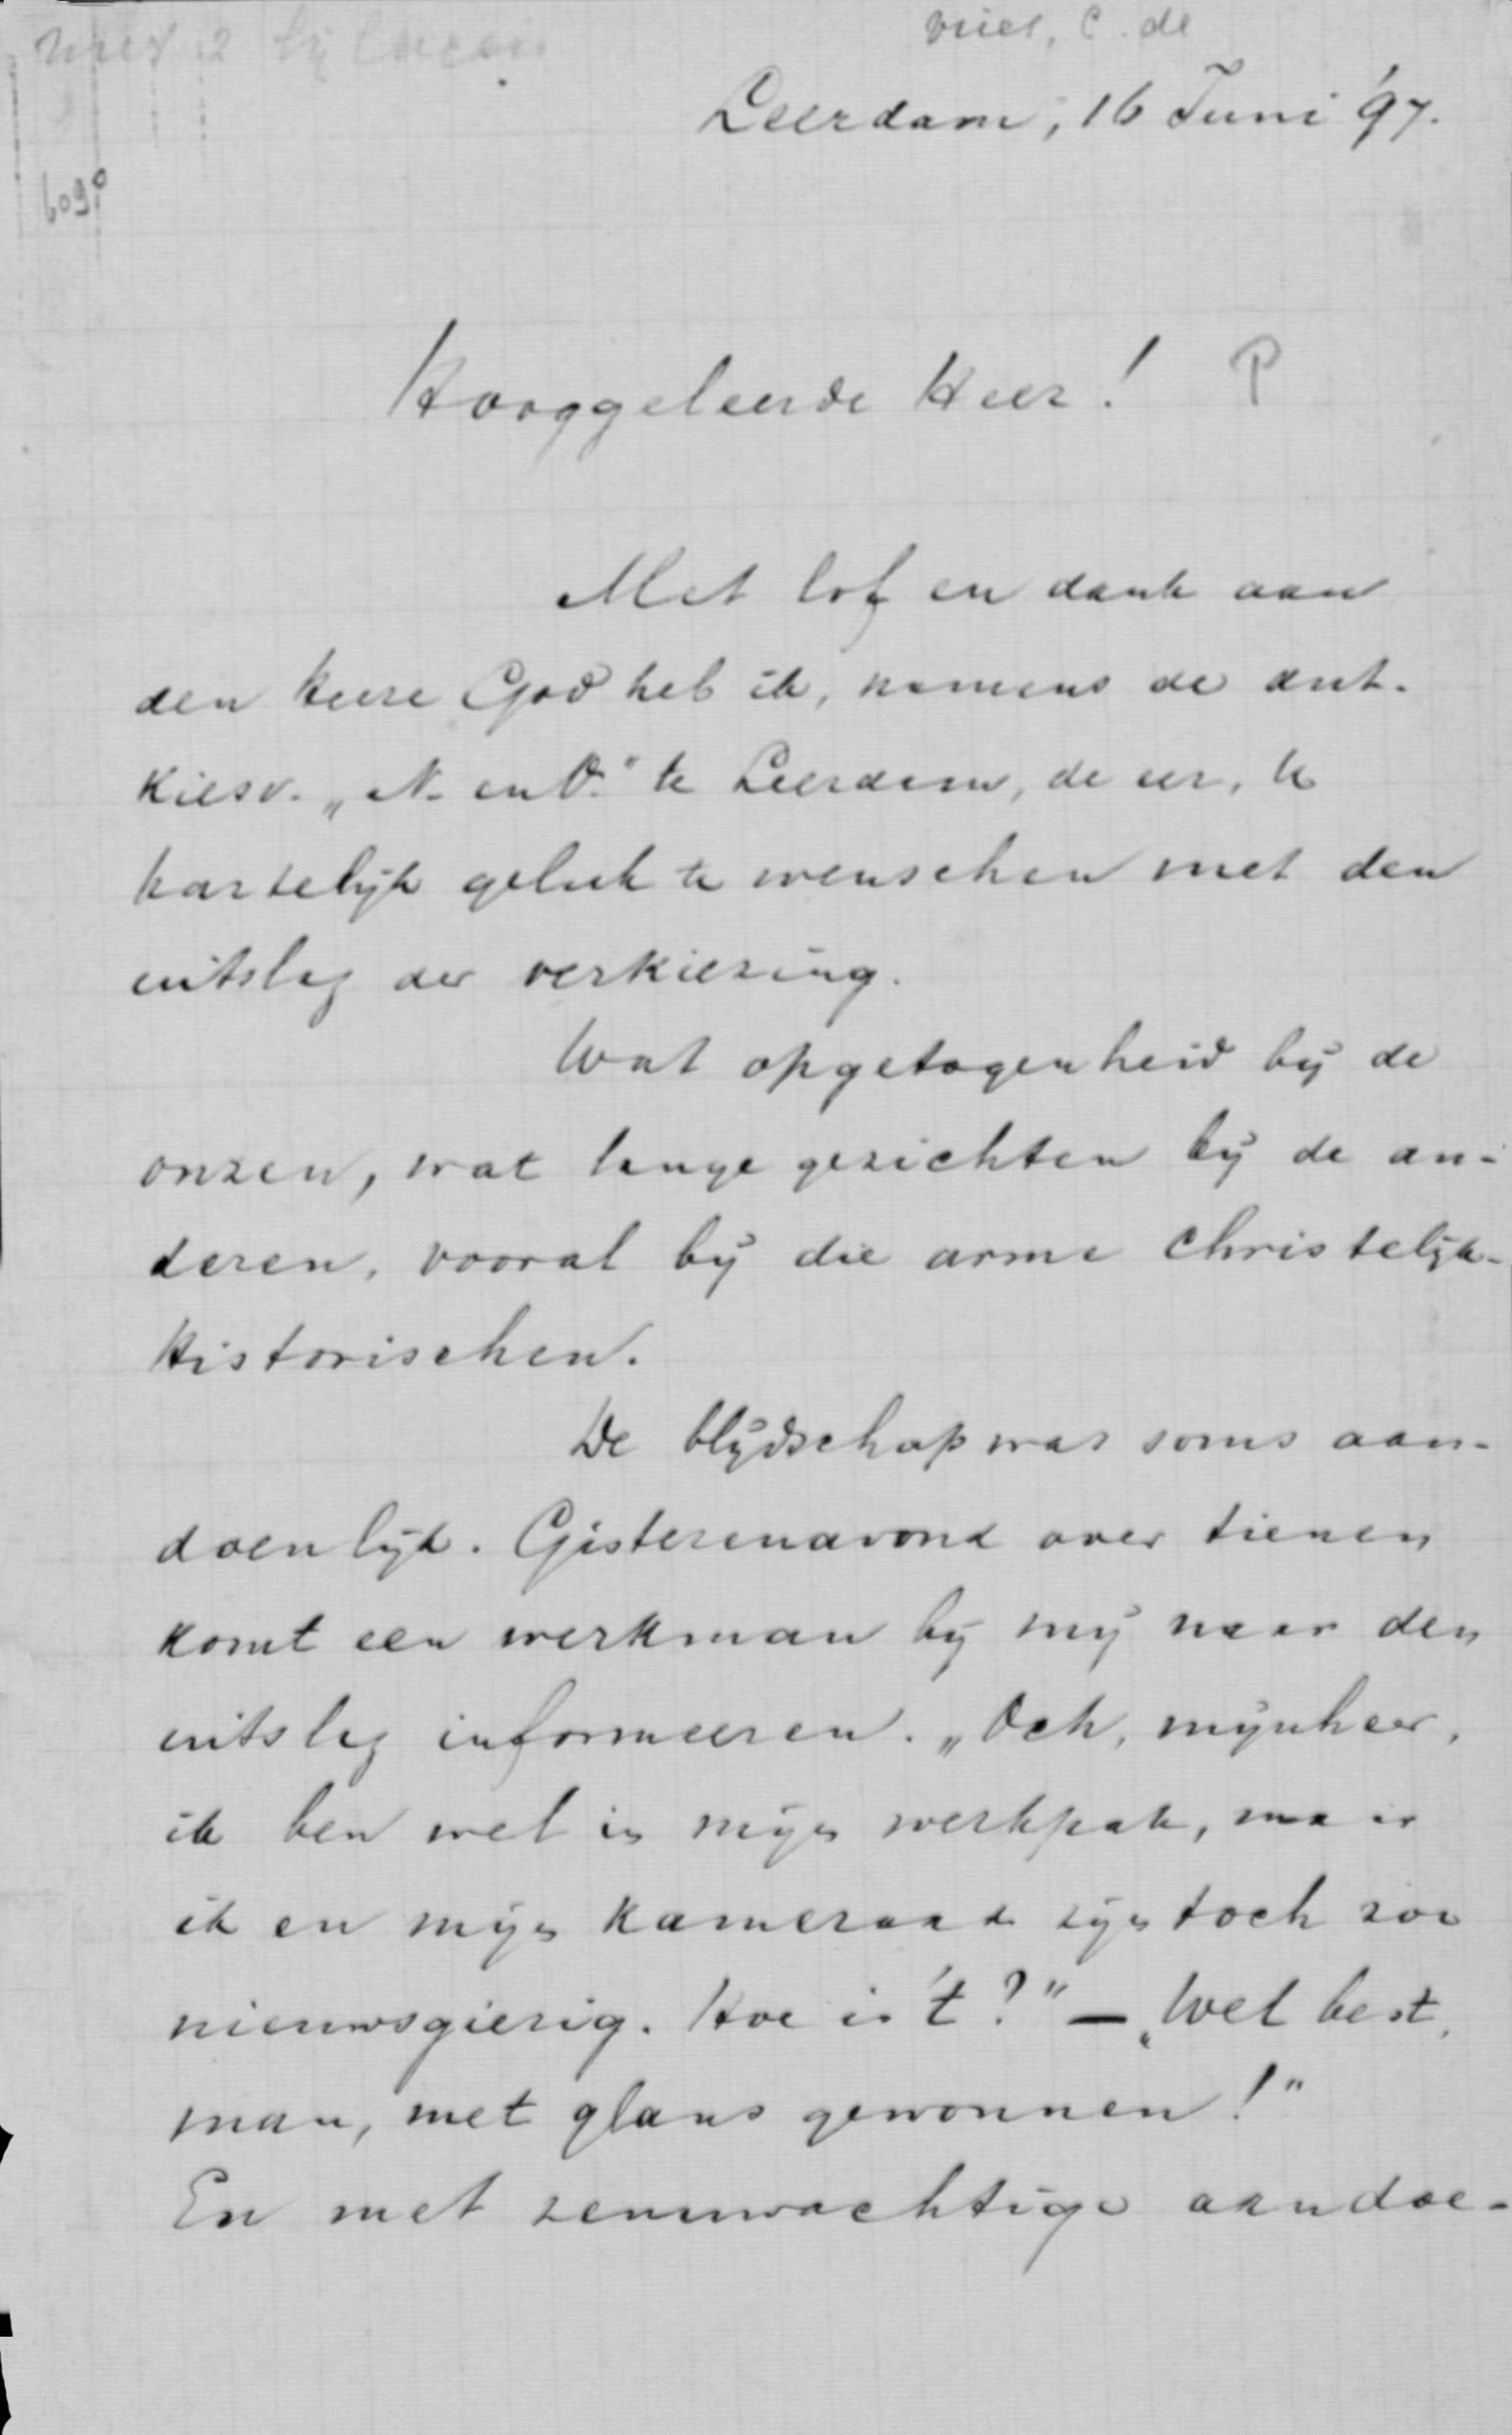 met 2 bijlagen
Vries, C. de
Leerdam, 16 Juni '97.
Hooggeleerde Heer! P
Met lof en dank aan
den Heere God heb ik, namens de ant.
Kiesv. „N. en O." te Leerdam, de eer, U
hartelijk geluk te wenschen met den
uitslag der verkiezing.
Wat opgetogenheid bij de
onzen, wat lange gezichten bij de an-
deren, vooral bij die arme Christelijk-
Historischen.
De blijdschap was soms aan-
doenlijk. Gisterenavond over tienen
komt een werkman bij mij naar den
uitslag informeeren. „Och, mijnheer,
ik ben wel in mijn werkpak, maar
ik en mijn kameraad zijn toch zoo
nieuwsgierig. Hoe is 't?" — „Wel best,
man, met glans gewonnen!"
En met zenuwachtige aandoe-